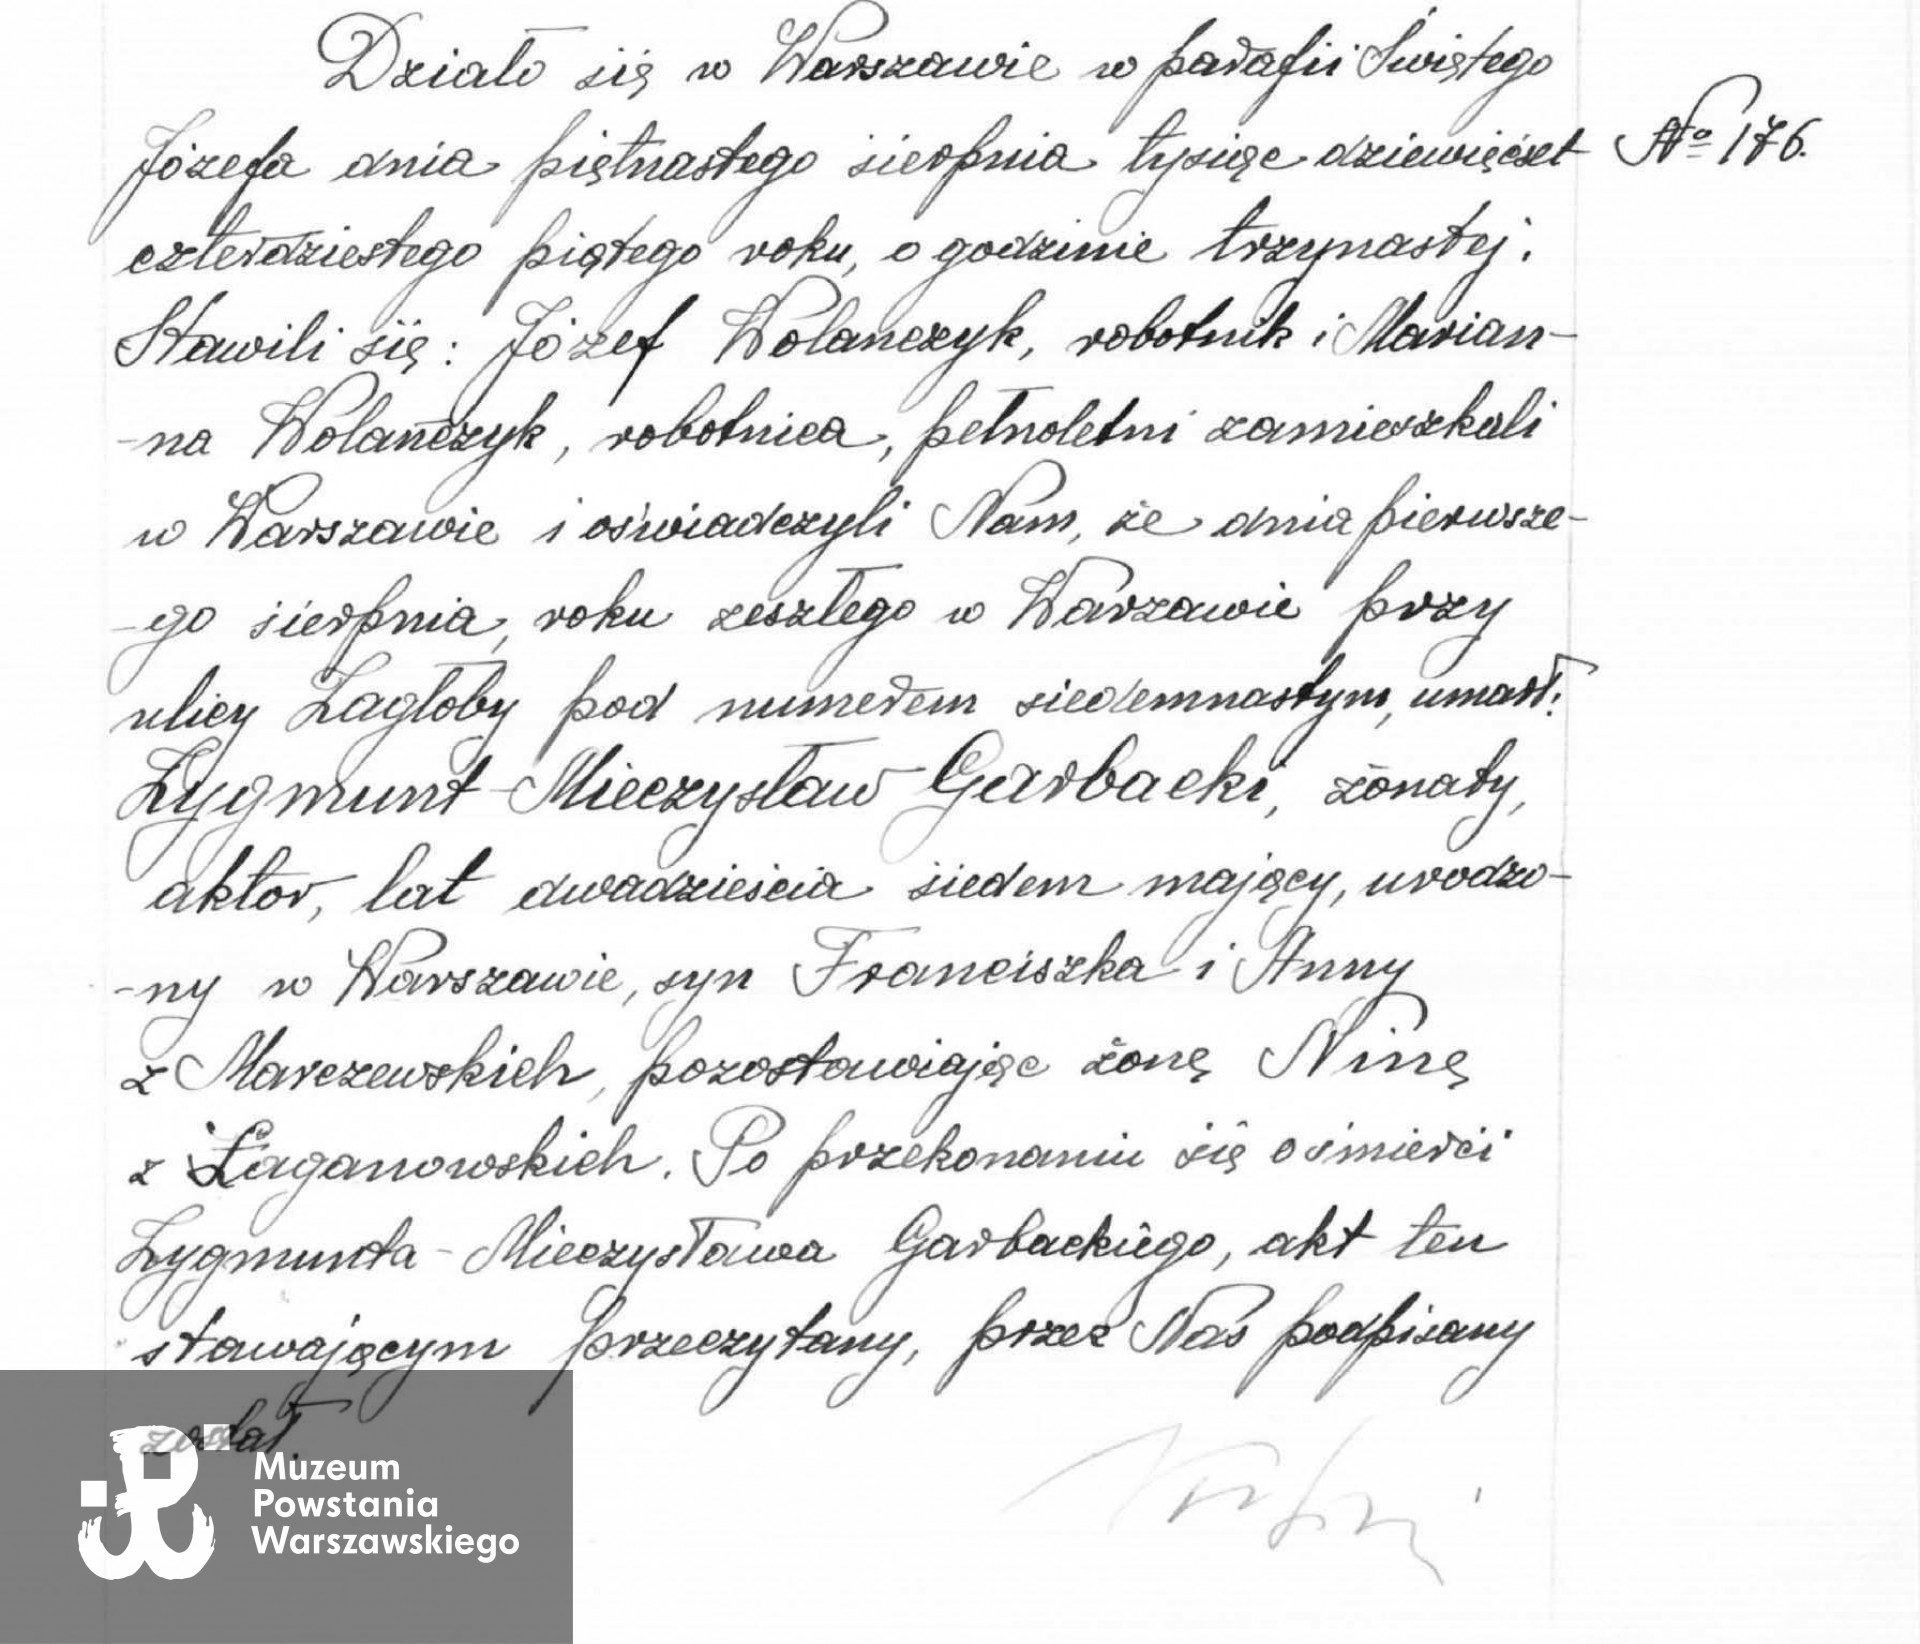 Działo się w Warszawie w parafii Świętego
Józefa dnia piętnastego sierpnia tysiąc dziewięćset
No 176.
czterdziestego piątego roku, o godzinie trzynastej.
Stawili się: Józef Wolanczyk, robotnik i Marian-
-na Wolańczyk, robotnica, pełnoletni zamieszkali
w Warszawie i oświadczyli Nam, że dnia pierwsze-
-go sierpnia, roku zeszłego w Warzawie przy
ulicy Zagłoby pod numerem siedemnastym, umarł:
Zygmunt-Mieczysław Garbacki, żonaty,
aktor, lat dwadzieścia siedem mający, urodzo-
-ny w Warszawie, syn Franciszka i Anny
z Marczewskich, pozostawiając żonę Ninę
z Łaganowskich. Po przekonaniu się o śmierci
Zygmunta-Mieczysława Garbackiego, akt ten
stawającym przeczytany, przez Nas podpisany
został.
Muzeum
Powstania
Warszawskiego